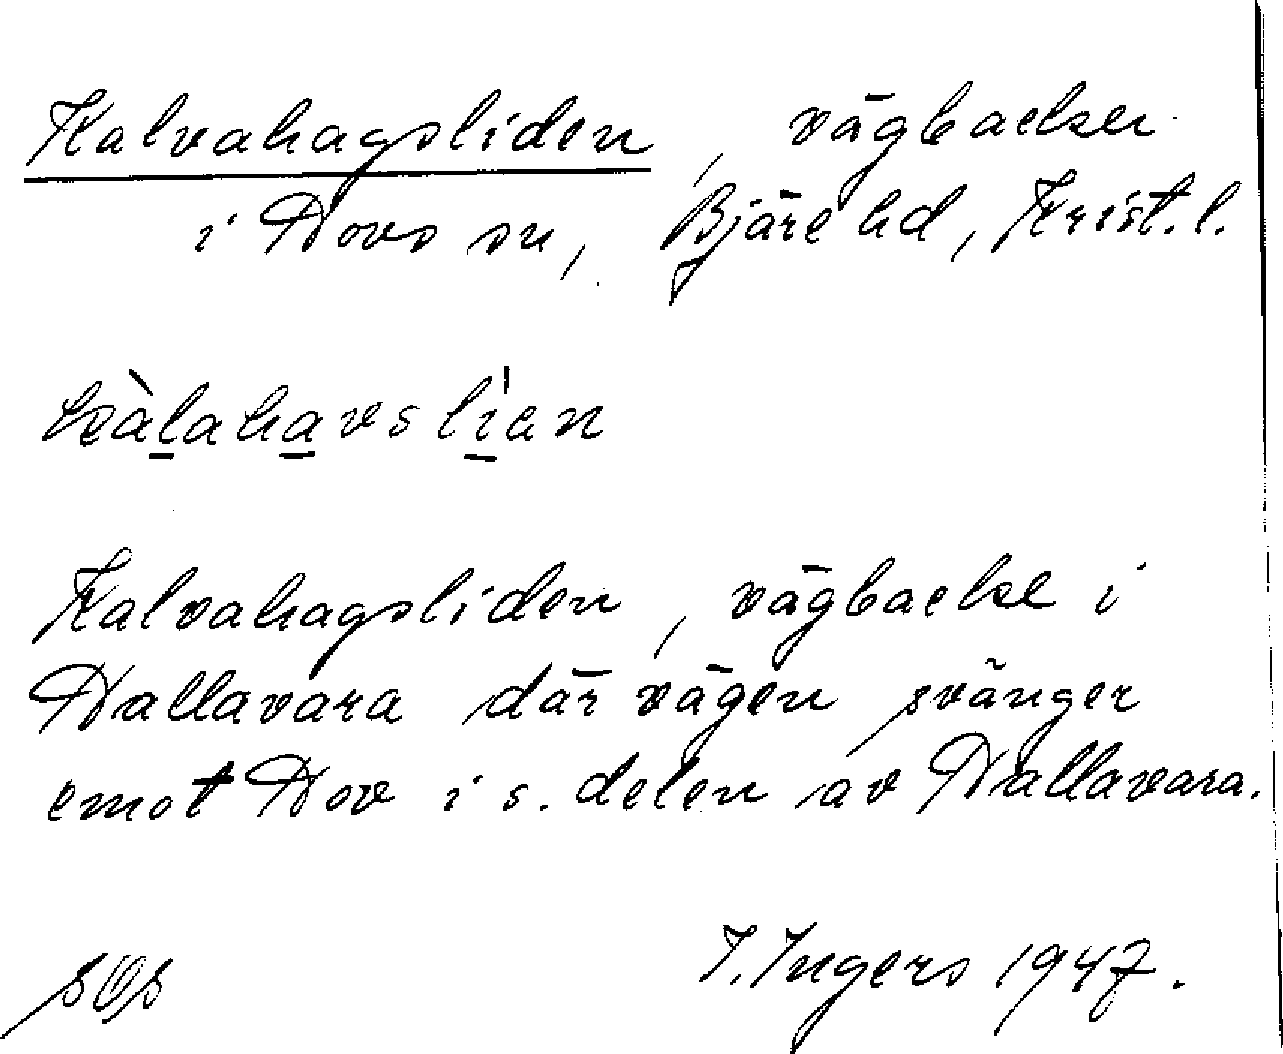 Kalvahagsliden, vägbacken
i Hovs sn, Bjäre hd, Krist. l.
kàlahavslìen
Kalvahagsliden, vägbacke i
Hallavara där vägen svänger
emot Hov i s. delen av Hallavara.
SOS I. Ingers 1947.